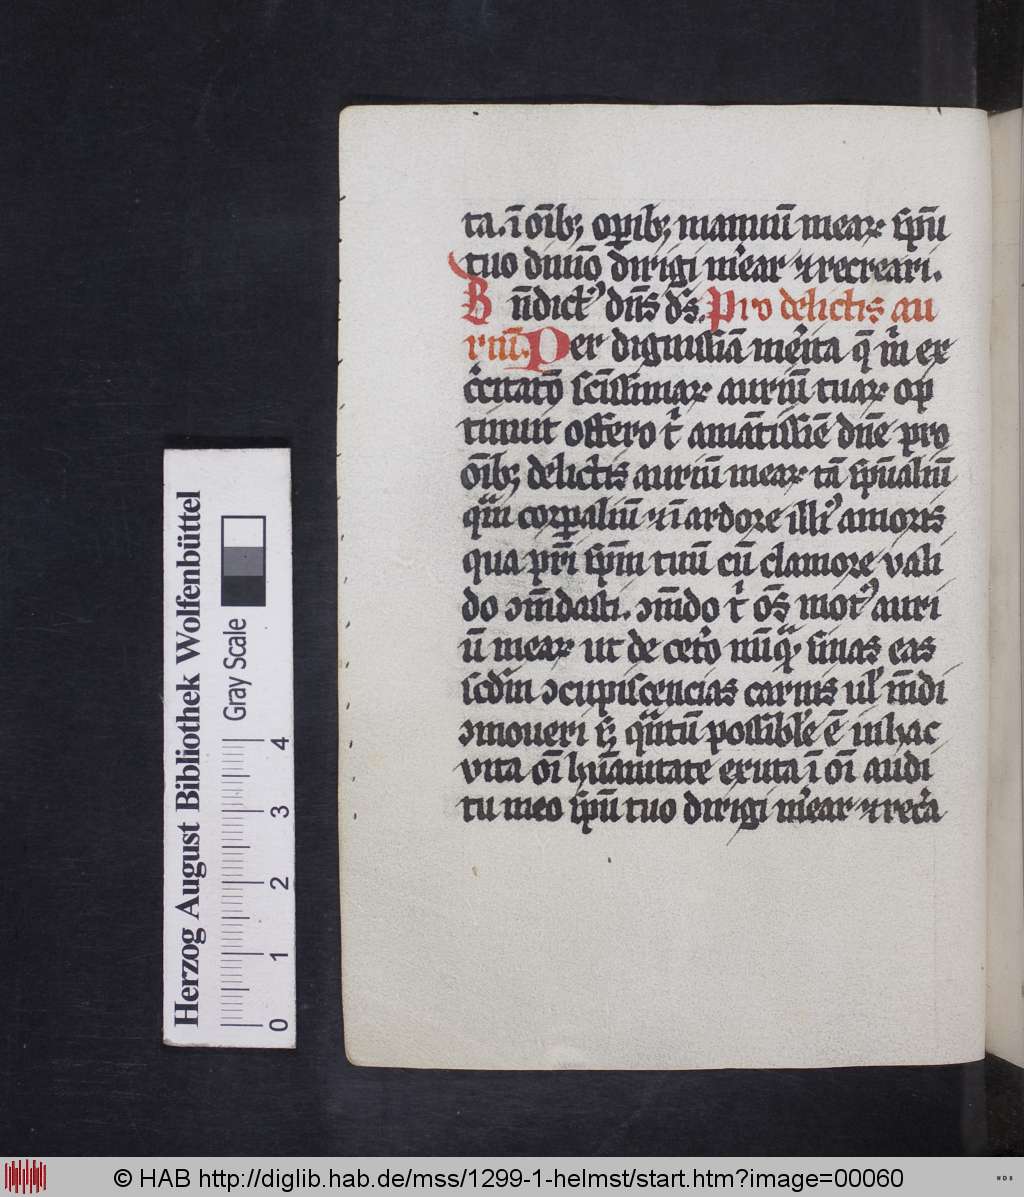 ta. ī oīb; oꝑib; manuū meaꝝ sp̄u
tuo diuīo dirigi m̓ear ⁊ recreari.
Bn̄dictꝰ dn̄s ds̄. Pro delictis au
riū. Per dignissiā m̓ita q̄ in ex
c̓citatō sc̄issimaꝝ auriū tuaꝝ op
tinuit offero tͥ amātissiē dn̄e pro
oīb; delictis auriū meaꝝ tā sp̄ualiū
qͣm corꝑaliū ⁊ ī ardore illiꝰ amoris
qua pr̄i sp̄m tuū cū clamore vali
do ↄm̄dasti. ↄm̄do tͥ oēs motꝰ auri
ū meaꝝ ut de cet̓o nūqͣ sinas eas
scd̄m ↄcupiscencias carnis ul̓ m̄di
ↄmoueri s; qͣntū possibile ē in hac
vita oī hūanitate exuta ī oī audi
tu meo sp̄u tuo dirigi m̓ear ⁊ rec̓a
Herzog August Bibliothek Wolfenbüttel
Gray Scale
0 1 2 3 4
© HAB http://diglib.hab.de/mss/1299-1-helmst/start.htm?image=00060